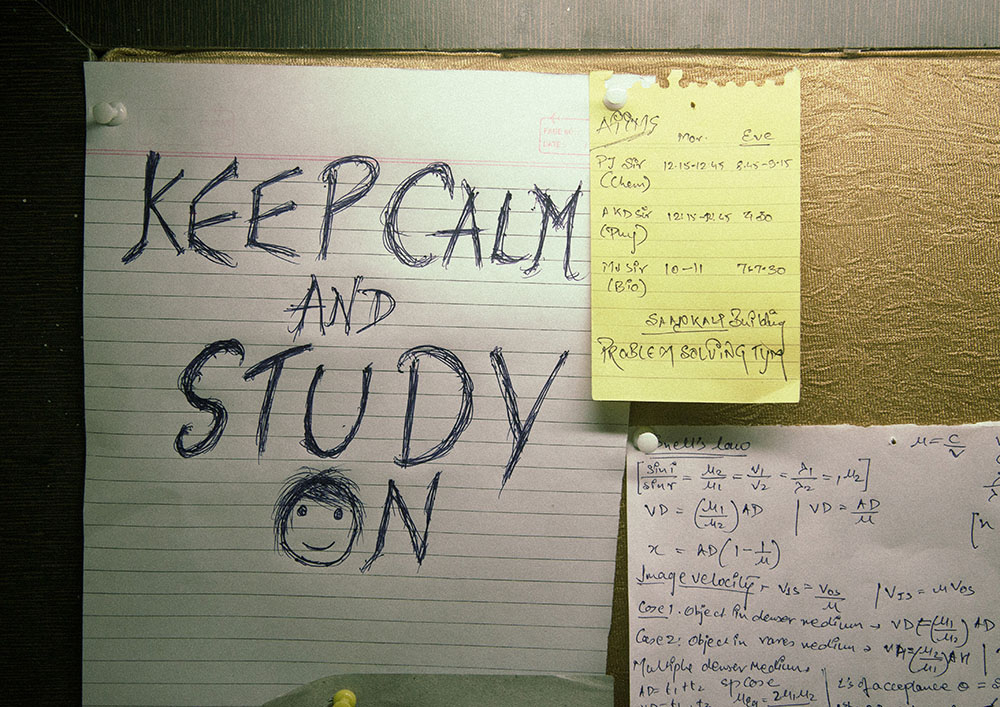 KEEP CALM
AND
STUDY
ON
PAGE NO.
DATE:
AIIMS
Mor. Eve
PJ Sir 12.15-12.45 8.45-9.15
(Chem)
AKD Sir 12.15-12.45
(Phy)
MJ Sir 10-11 7-7.30
(Bio)
Building
PROBLEM SOLVING TYM
Snell's law μ = c/v
[sin i/sin r = μ2/μ1 = v1/v2 = λ1/λ2 = 1μ2]
VD = (μ1/μ2) AD | VD = AD/μ
x = AD(1 - 1/μ)
Image velocity → VIS = VOS/μ | VIS = μ VOS
Case 1. Object in denser medium → VD = (μ1/μ2) AD
Case 2: Object in rarer medium → (μ2/μ1) AH
Multiple denser medium,
AD = t1 + t2 sp case
μeq = 2μ1μ2
L's of acceptance θ =